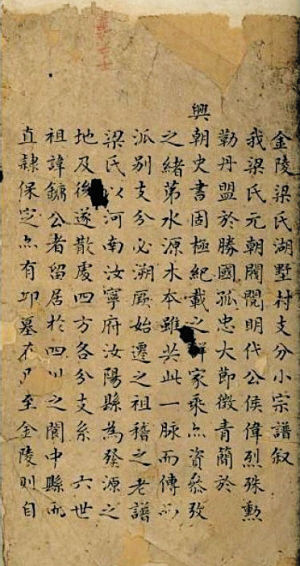 金陵梁氏湖墅村支分小宗譜叙
我梁氏元朝閥閱明代公侯偉烈殊勳
勒丹盟於勝國孤忠大節徵青簡於
興朝史書固極紀載之詳家乘亦資叅攷
之緒第水源木本雖共此一脉而傳以
派別支分必溯厥始遷之祖稽之老譜
梁氏以河南汝寧府汝陽縣為發源之
地及後遂散處四方各分支系 六世
祖諱鏞公者留居於四川之閬中縣而
直隸保定亦有邱墓在至金陵則自